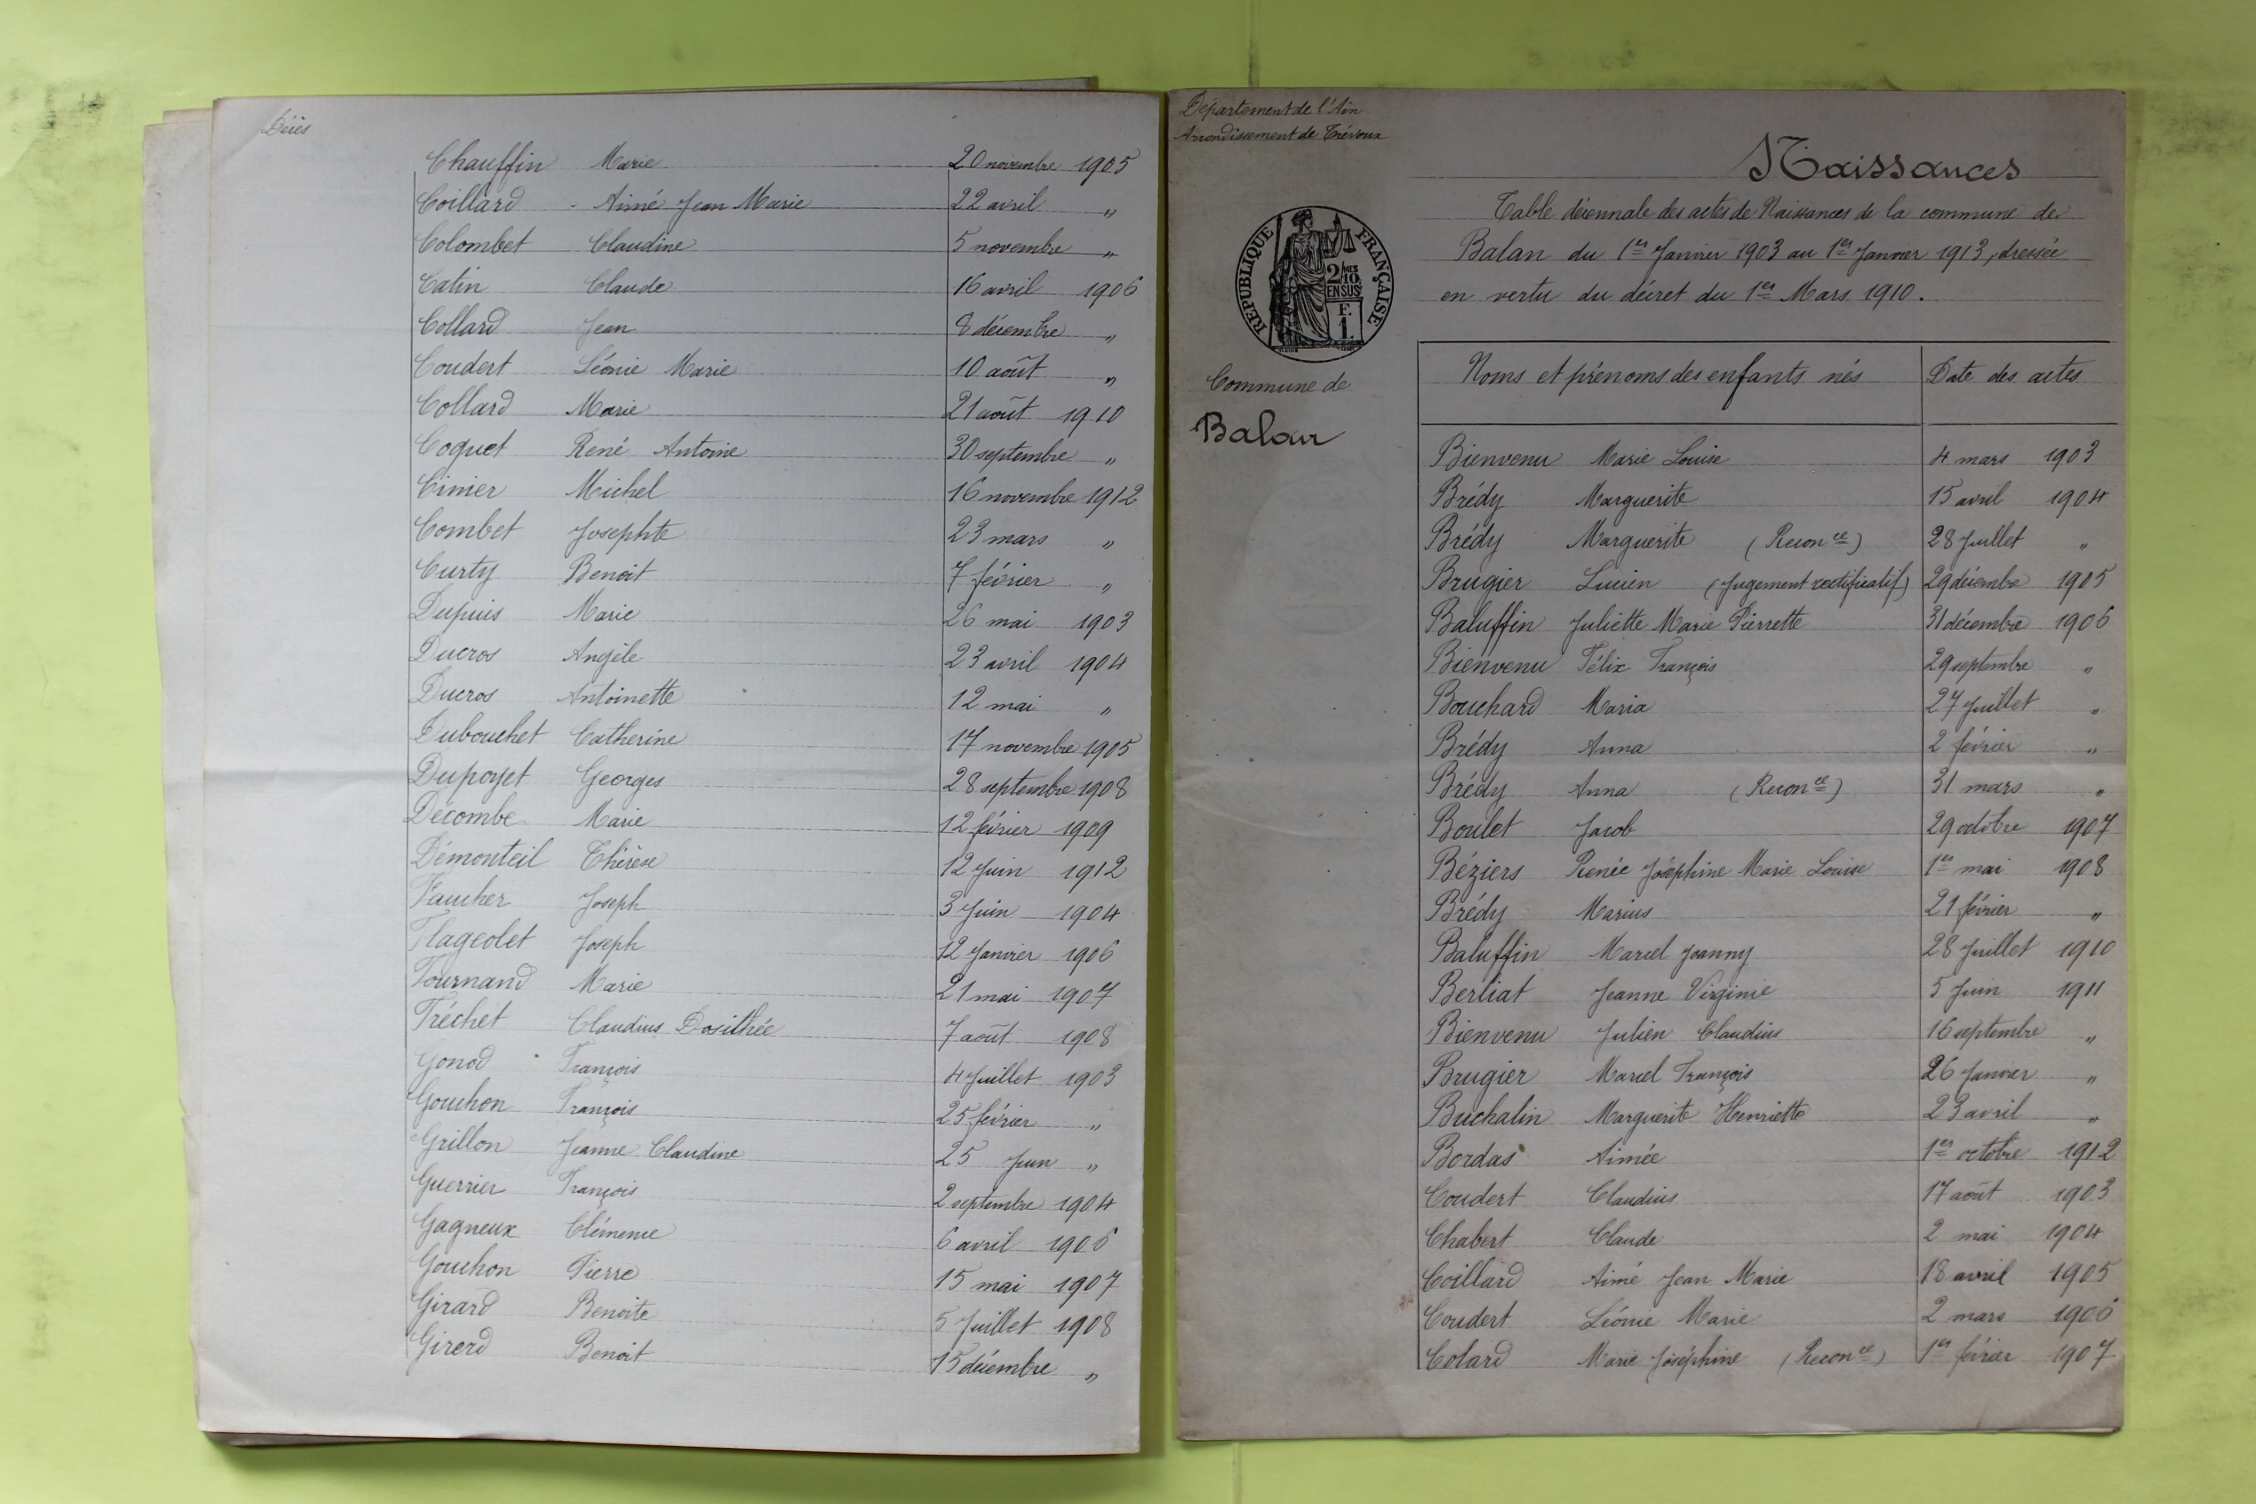 Décès
Chauffin Marie 20 novembre 1905
Coillard Aimé Jean Marie 22 avril "
Colombet Claudine 5 novembre "
Catin Claude 16 avril 1906
Collard Jean 8 décembre "
Coudert Léonie Marie 10 août "
Collard Marie 21 août 1910
Coquet René Antoine 30 septembre "
Cinier Michel 16 novembre 1912
Combet Josephte 23 mars "
Curty Benoit 7 février "
Dupuis Marie 26 mai 1903
Ducros Angèle 23 avril 1904
Ducros Antoinette 12 mai "
Dubouchet Catherine 17 novembre 1905
Dupoyet Georges 28 septembre 1908
Décombe Marie 12 février 1909
Démonteil Thérèse 12 Juin 1912
Faucher Joseph 3 Juin 1904
Flageolet Joseph 12 Janvier 1906
Fournand Marie 21 mai 1907
Fréchet Claudius Dosithée 7 août 1908
Gonod François 4 Juillet 1903
Gouchon François 25 février "
Grillon Jeanne Claudine 25 Juin "
Guerrier François 2 septembre 1904
Gagneux Clémence 6 avril 1906
Gouchon Pierre 15 mai 1907
Girard Benoite 5 Juillet 1908
Girerd Benoit 15 décembre "
Département de l'Ain
Arrondissement de Trévoux
Naissances
Table décennale des actes de Naissances de la commune de
Balan du 1er Janvier 1903 au 1er Janvier 1913, dressée
en vertu du décret du 1er Mars 1910.
RÉPUBLIQUE FRANÇAISE
2/10
EN SUS
F.
1.
Commune de
Balan
Noms et prénoms des enfants nés Date des actes
Bienvenu Marie Louise 4 mars 1903
Brédy Marguerite 15 avril 1904
Brédy Marguerite (Reconce) 28 Juillet "
Brugier Lucien (Jugement rectificatif) 29 décembre 1905
Baluffin Juliette Marie Pierrette 31 décembre 1906
Bienvenu Félix François 29 septembre "
Bouchard Maria 27 Juillet "
Brédy Anna 2 février "
Brédy Anna (Reconce) 31 mars "
Boulet Jacob 29 octobre 1907
Béziers Renée Joséphine Marie Louise 1er mai 1908
Brédy Marius 21 février "
Baluffin Marcel Joanny 28 Juillet 1910
Berliat Jeanne Virginie 5 Juin 1911
Bienvenu Julien Claudius 16 septembre "
Brugier Marcel François 26 Janvier "
Buchalin Marguerite Henriette 23 avril "
Bordas Aimée 1er octobre 1912
Coudert Claudius 17 août 1903
Chabert Claude 2 mai 1904
Coillard Aimé Jean Marie 18 avril 1905
Coudert Léonie Marie 2 mars 1906
Colard Marie Joséphine (Reconce) 1er février 1907